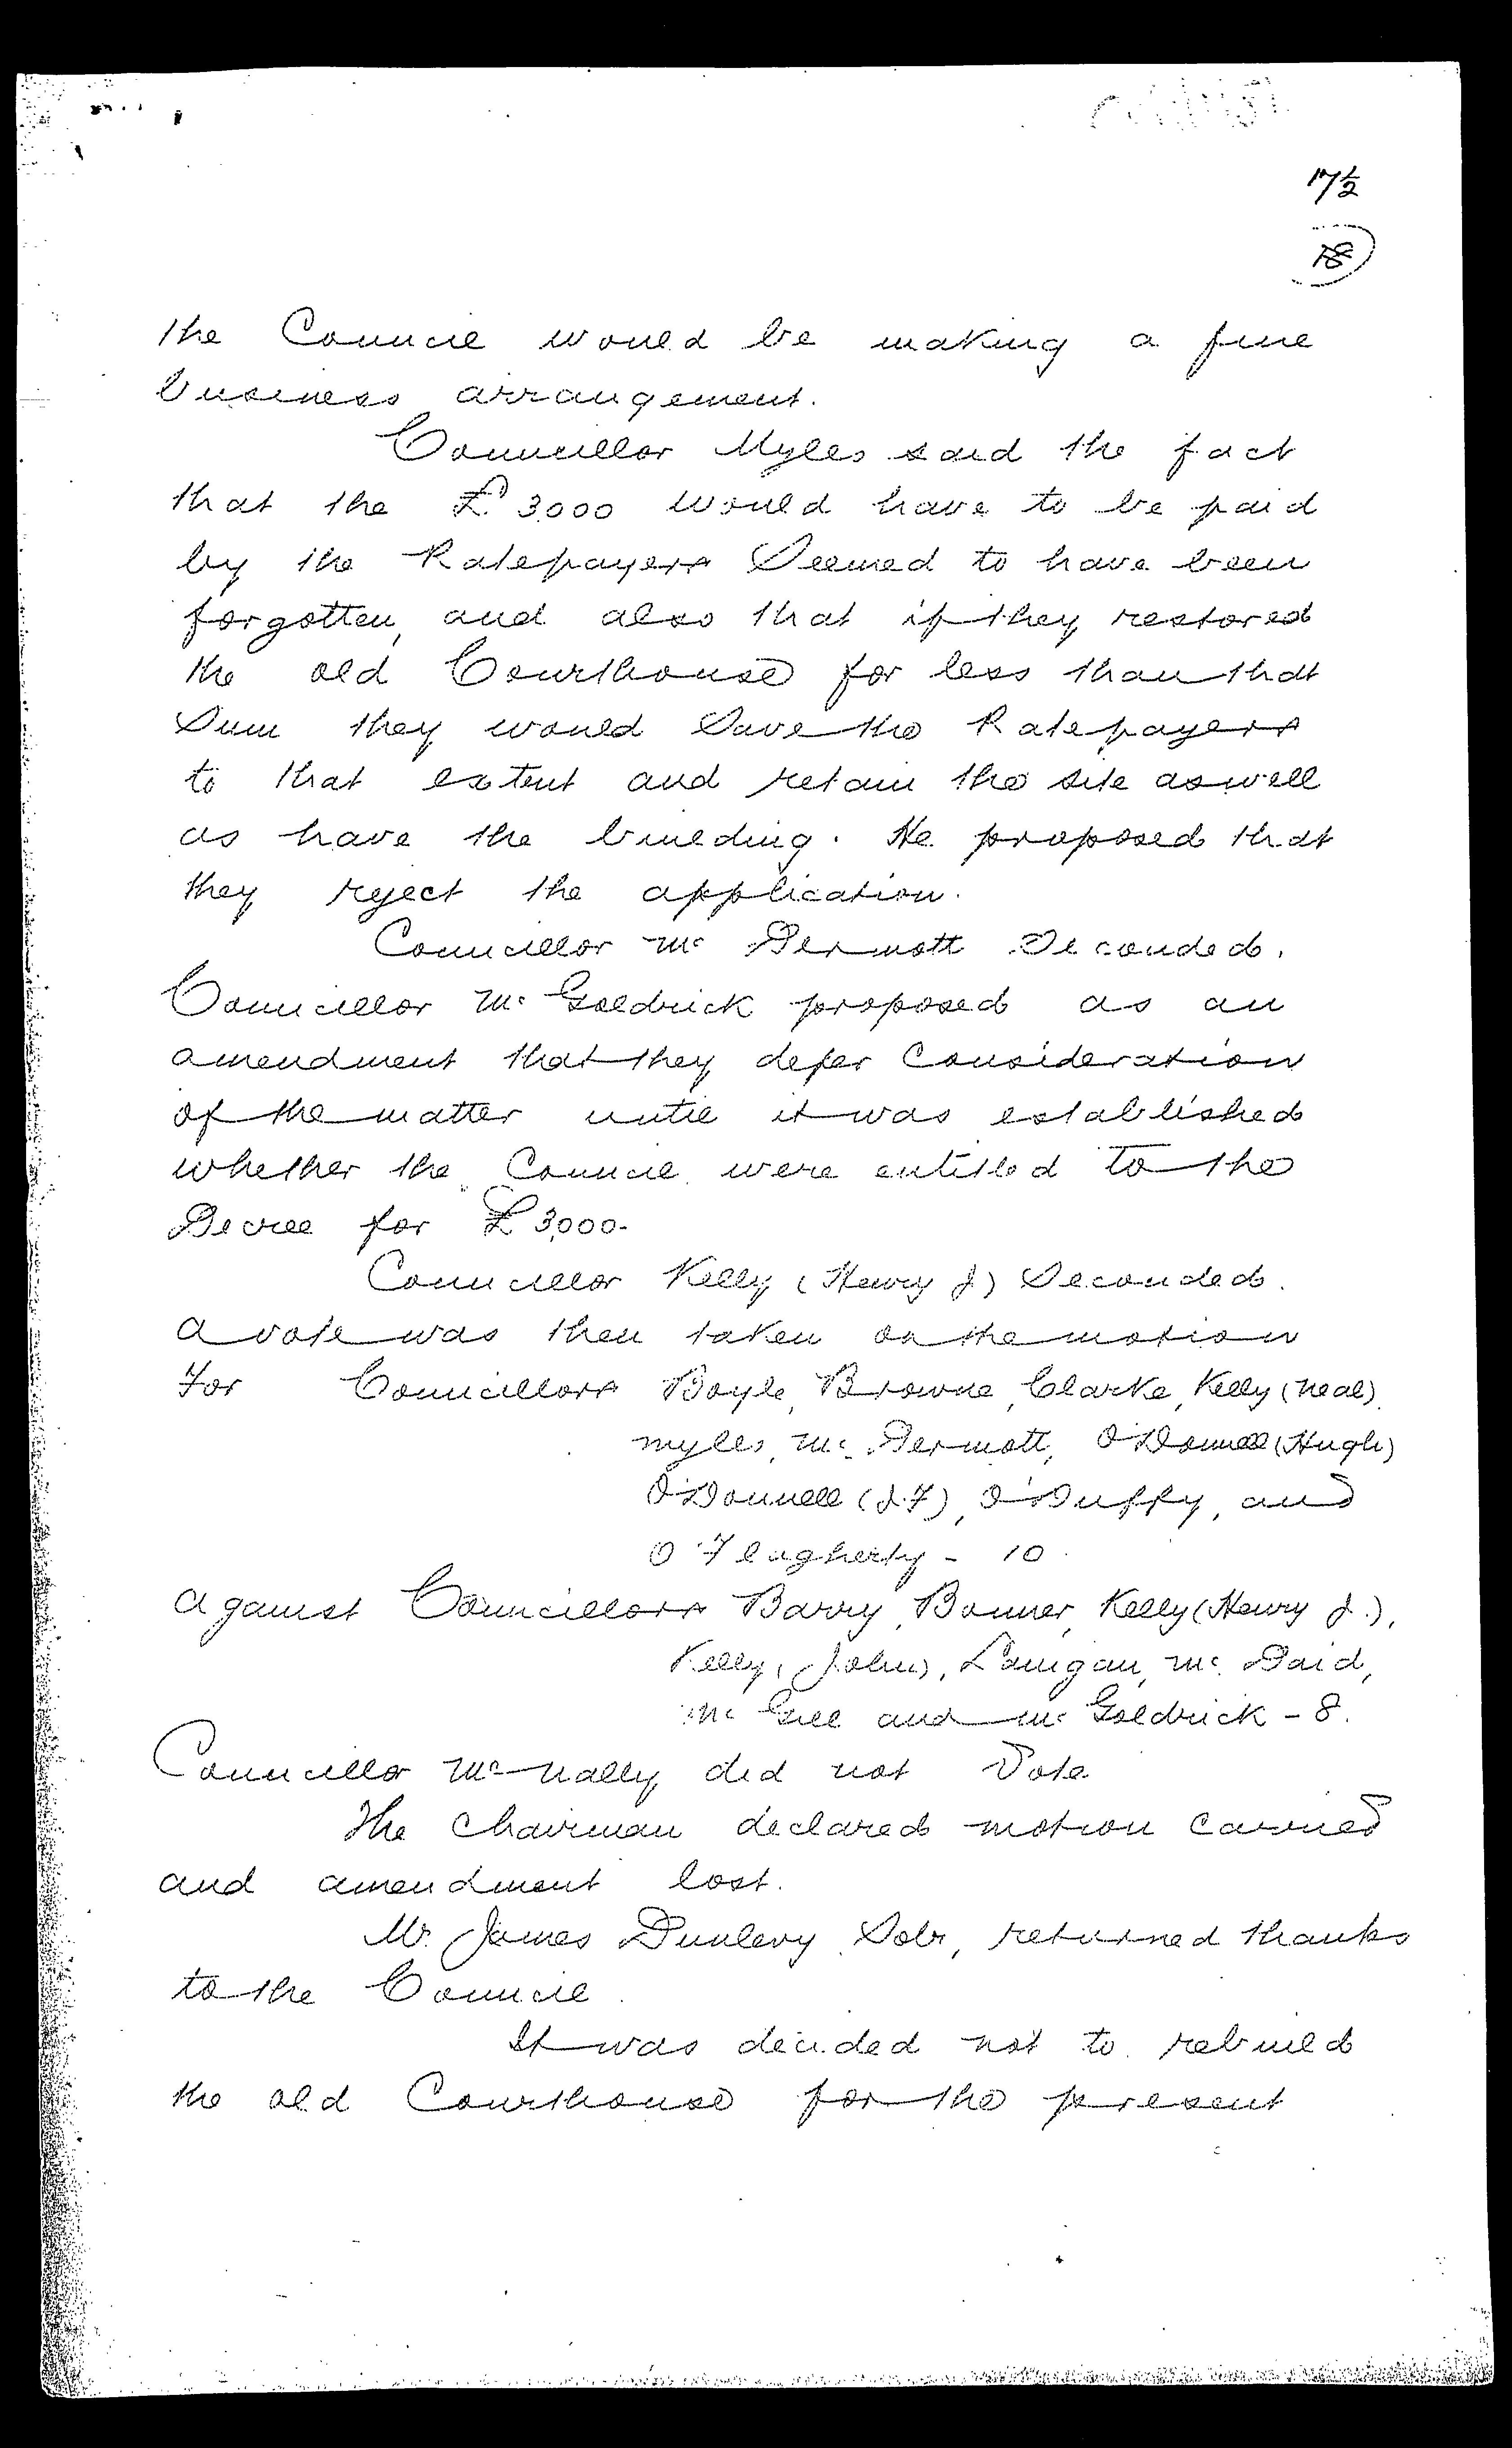 17½
18
the Council would be making a fine
business arrangement.
Councillor Myles said the fact
that the £3000 would have to be paid
by the Ratepayers Seemed to have been
forgotten, and also that if they restored
the old Courthouse for less than that
Sum they would Save the Ratepayers
to that extent and retain the site aswell
as have the building. He proposed that
they reject the application.
Councillor Mc Dermott Seconded.
Councillor Mc Goldrick proposed as an
amendment that they defer Consideration
of the matter until it was established
whether the Council were entitled to the
Decree for £3,000-
Councillor Kelly (Henry J) Seconded.
A vote was then taken on the motion
For Councillors Boyle, Browne, Clarke, Kelly (Neal),
Myles, Mc Dermott, O'Donnell (Hugh)
O'Donnell (J.F), O'Duffy, and
O'Flagherty - 10.
Against Councillors Barry, Bonner, Kelly (Henry J.),
Kelly, (John), Lanigan, Mc Daid,
Mc Gill and Mc Goldrick - 8.
Councillor McNally did not Vote
The Chairman declared motion carried
and amendment lost.
Mr. James Dunlevy Solr, returned thanks
to the Council.
It was decided not to rebuild
the old Courthouse for the present